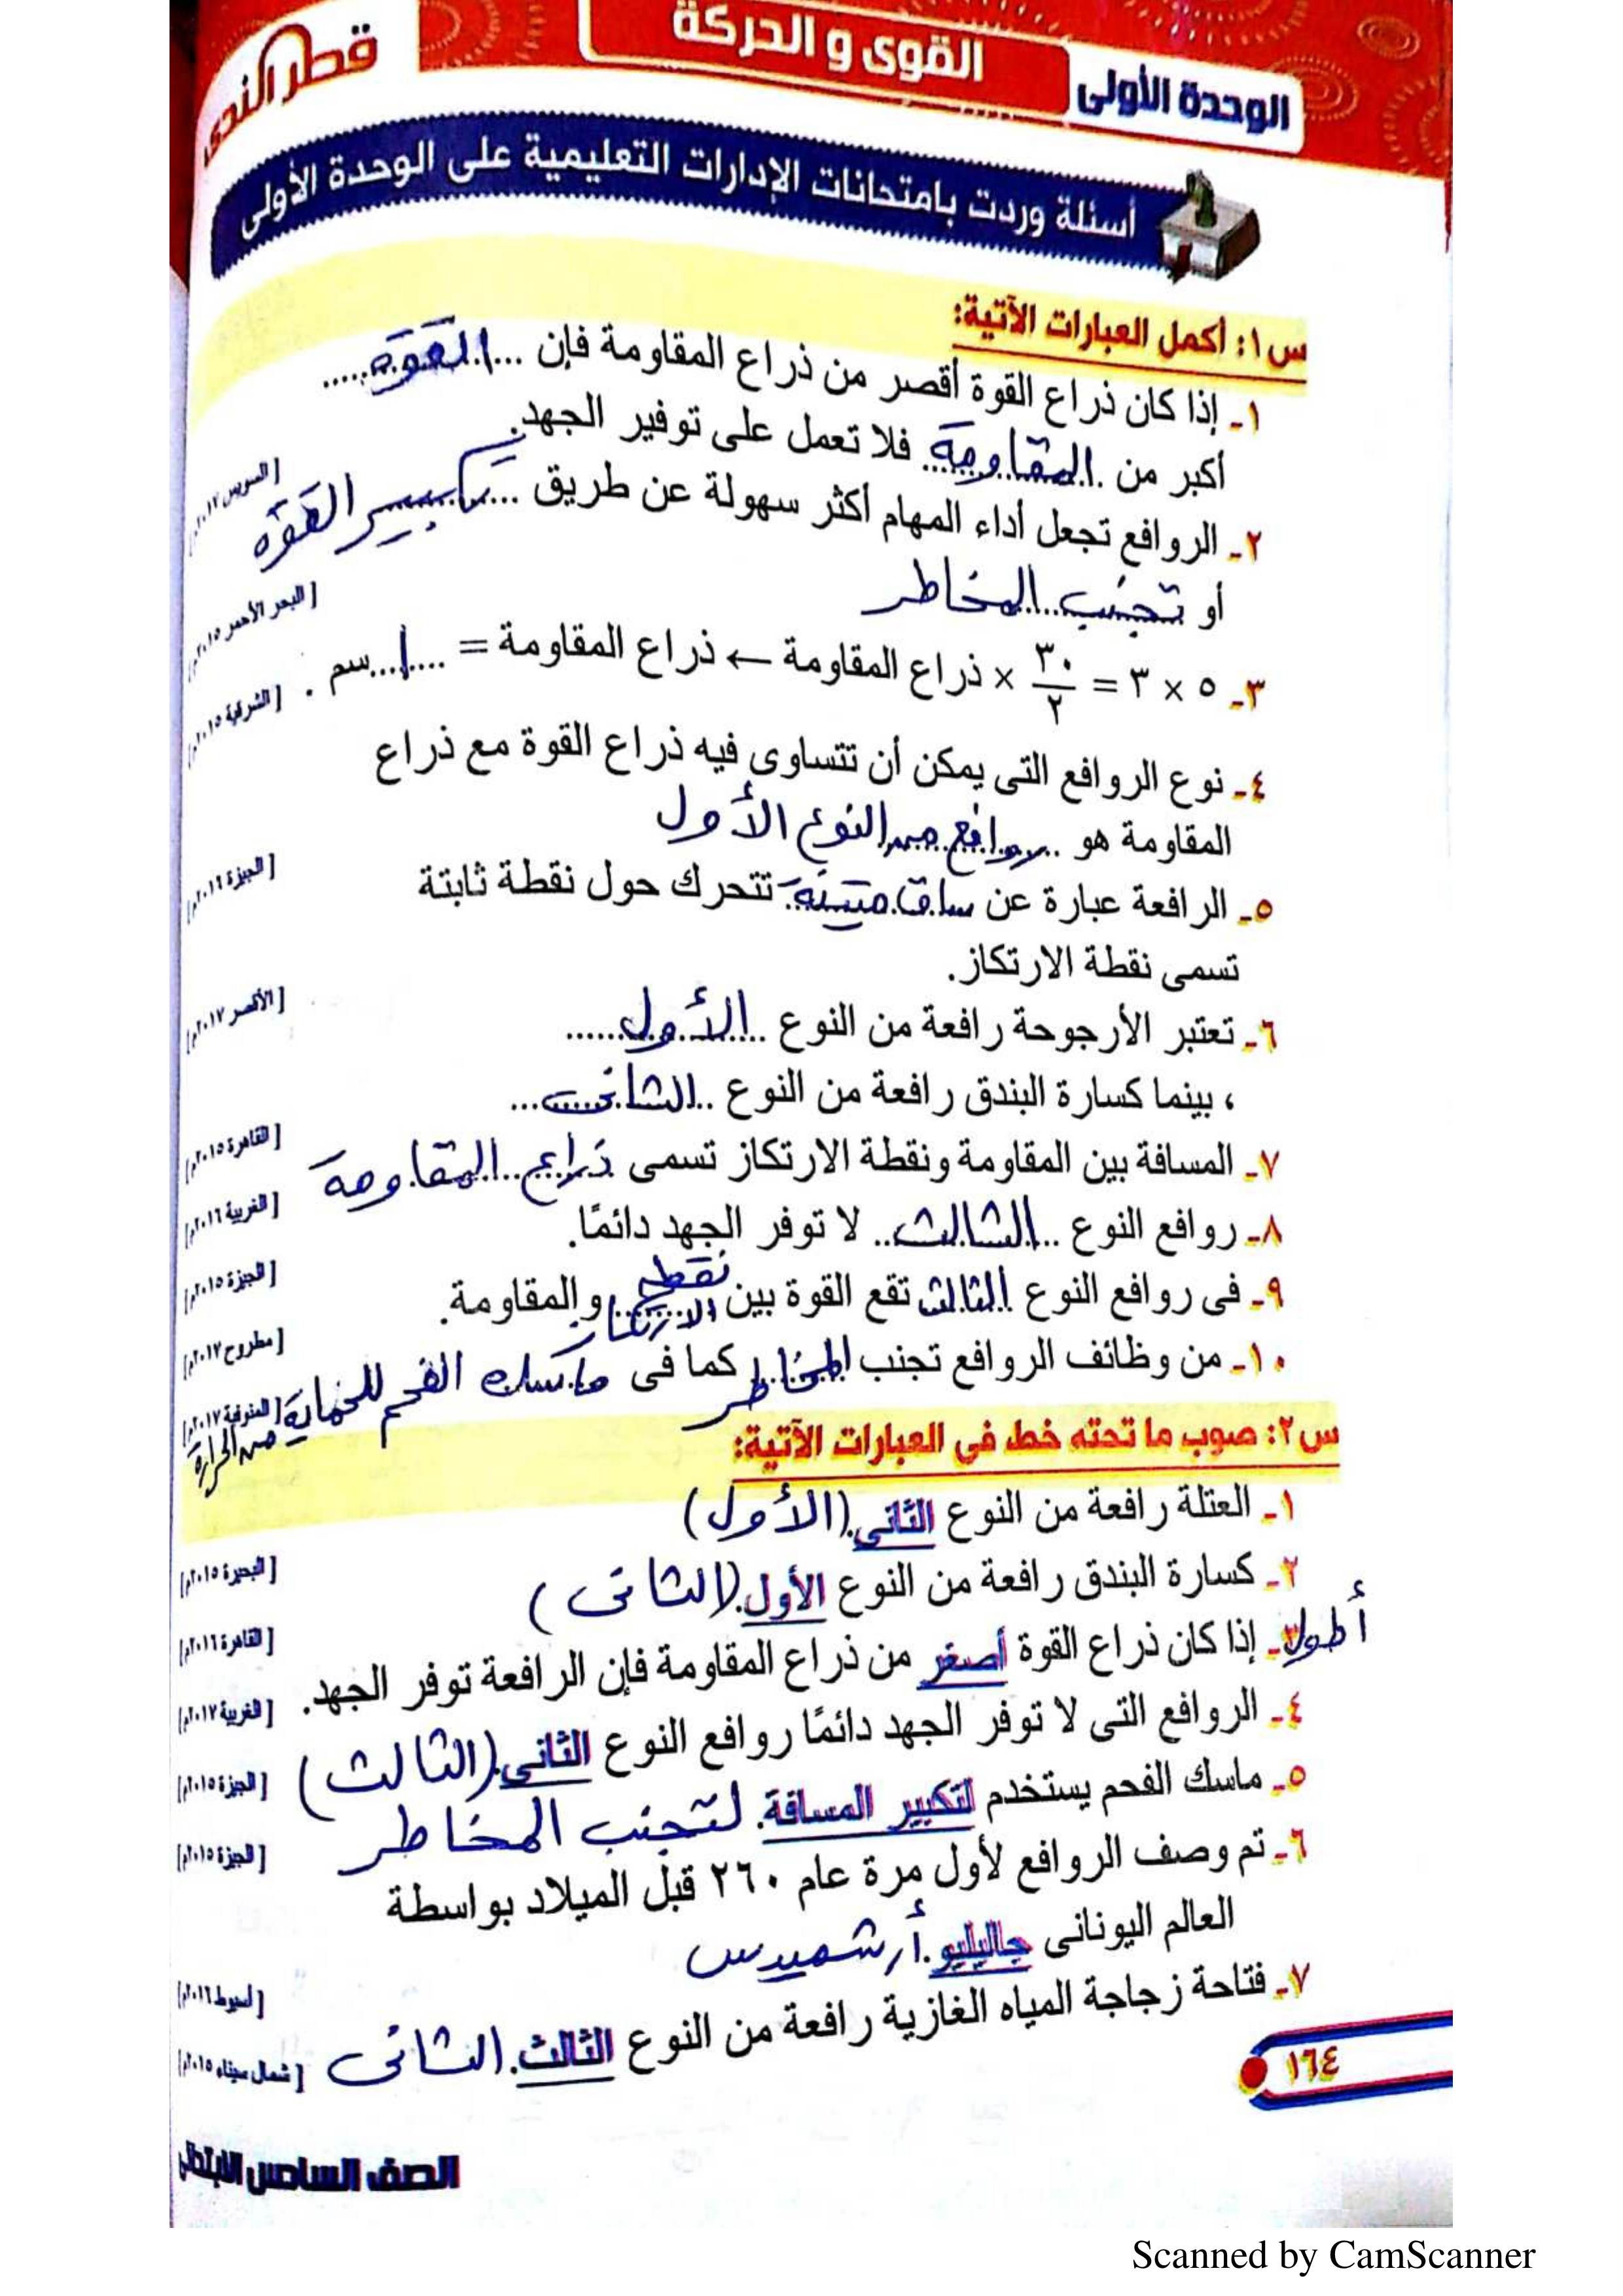 قطر الندى
القوى و الحركة
الوحدة الأولى
أسئلة وردت بامتحانات الإدارات التعليمية على الوحدة الأولى
س١: أكمل العبارات الآتية:
١- إذا كان ذراع القوة أقصر من ذراع المقاومة فإن ...القوة.....
أكبر من .المقاومة.. فلا تعمل على توفير الجهد. [السويس ٢٠١٧م]
٢- الروافع تجعل أداء المهام أكثر سهولة عن طريق ...تكبير القوة
أو تجنب المخاطر [البحر الأحمر ٢٠١٥م]
٣- ٥ × ٣ = ٣٠/٢ × ذراع المقاومة ← ذراع المقاومة = ....١...سم . [الشرقية ٢٠١٥م]
٤- نوع الروافع التى يمكن أن تتساوى فيه ذراع القوة مع ذراع
المقاومة هو ..روافع من النوع الأول [الجيزة ٢٠١٦م]
٥- الرافعة عبارة عن ساق متينة تتحرك حول نقطة ثابتة
تسمى نقطة الارتكاز. [الأقصر ٢٠١٧م]
٦- تعتبر الأرجوحة رافعة من النوع ..الأول......
، بينما كسارة البندق رافعة من النوع ..الثانى... [القاهرة ٢٠١٥م]
٧- المسافة بين المقاومة ونقطة الارتكاز تسمى ذراع المقاومة [الغربية ٢٠١٦م]
٨- روافع النوع ..الثالث.. لا توفر الجهد دائمًا. [الجيزة ٢٠١٥م]
٩- فى روافع النوع الثالث تقع القوة بين نقطة الارتكاز والمقاومة. [مطروح ٢٠١٧م]
١٠- من وظائف الروافع تجنب المخاطر كما فى ماسك الفحم للحماية من الحرارة [المنوفية ٢٠١٧م]
س٢: صوب ما تحته خط فى العبارات الآتية:
١- العتلة رافعة من النوع الثانى.(الأول) [البحيرة ٢٠١٥م]
٢- كسارة البندق رافعة من النوع الأول.(الثانى) [القاهرة ٢٠١٦م]
أطول
٣- إذا كان ذراع القوة أصغر من ذراع المقاومة فإن الرافعة توفر الجهد. [الغربية ٢٠١٧م]
٤- الروافع التى لا توفر الجهد دائمًا روافع النوع الثانى.(الثالث) [الجيزة ٢٠١٥م]
٥- ماسك الفحم يستخدم لتكبير المسافة. لتجنب المخاطر [الجيزة ٢٠١٥م]
٦- تم وصف الروافع لأول مرة عام ٢٦٠ قبل الميلاد بواسطة
العالم اليونانى جاليليو. أرشميدس [أسيوط ٢٠١٦م]
٧- فتاحة زجاجة المياه الغازية رافعة من النوع الثالث. (الثانى [شمال سيناء ٢٠١٥م]
١٦٤
الصف السادس الابتدائى
Scanned by CamScanner